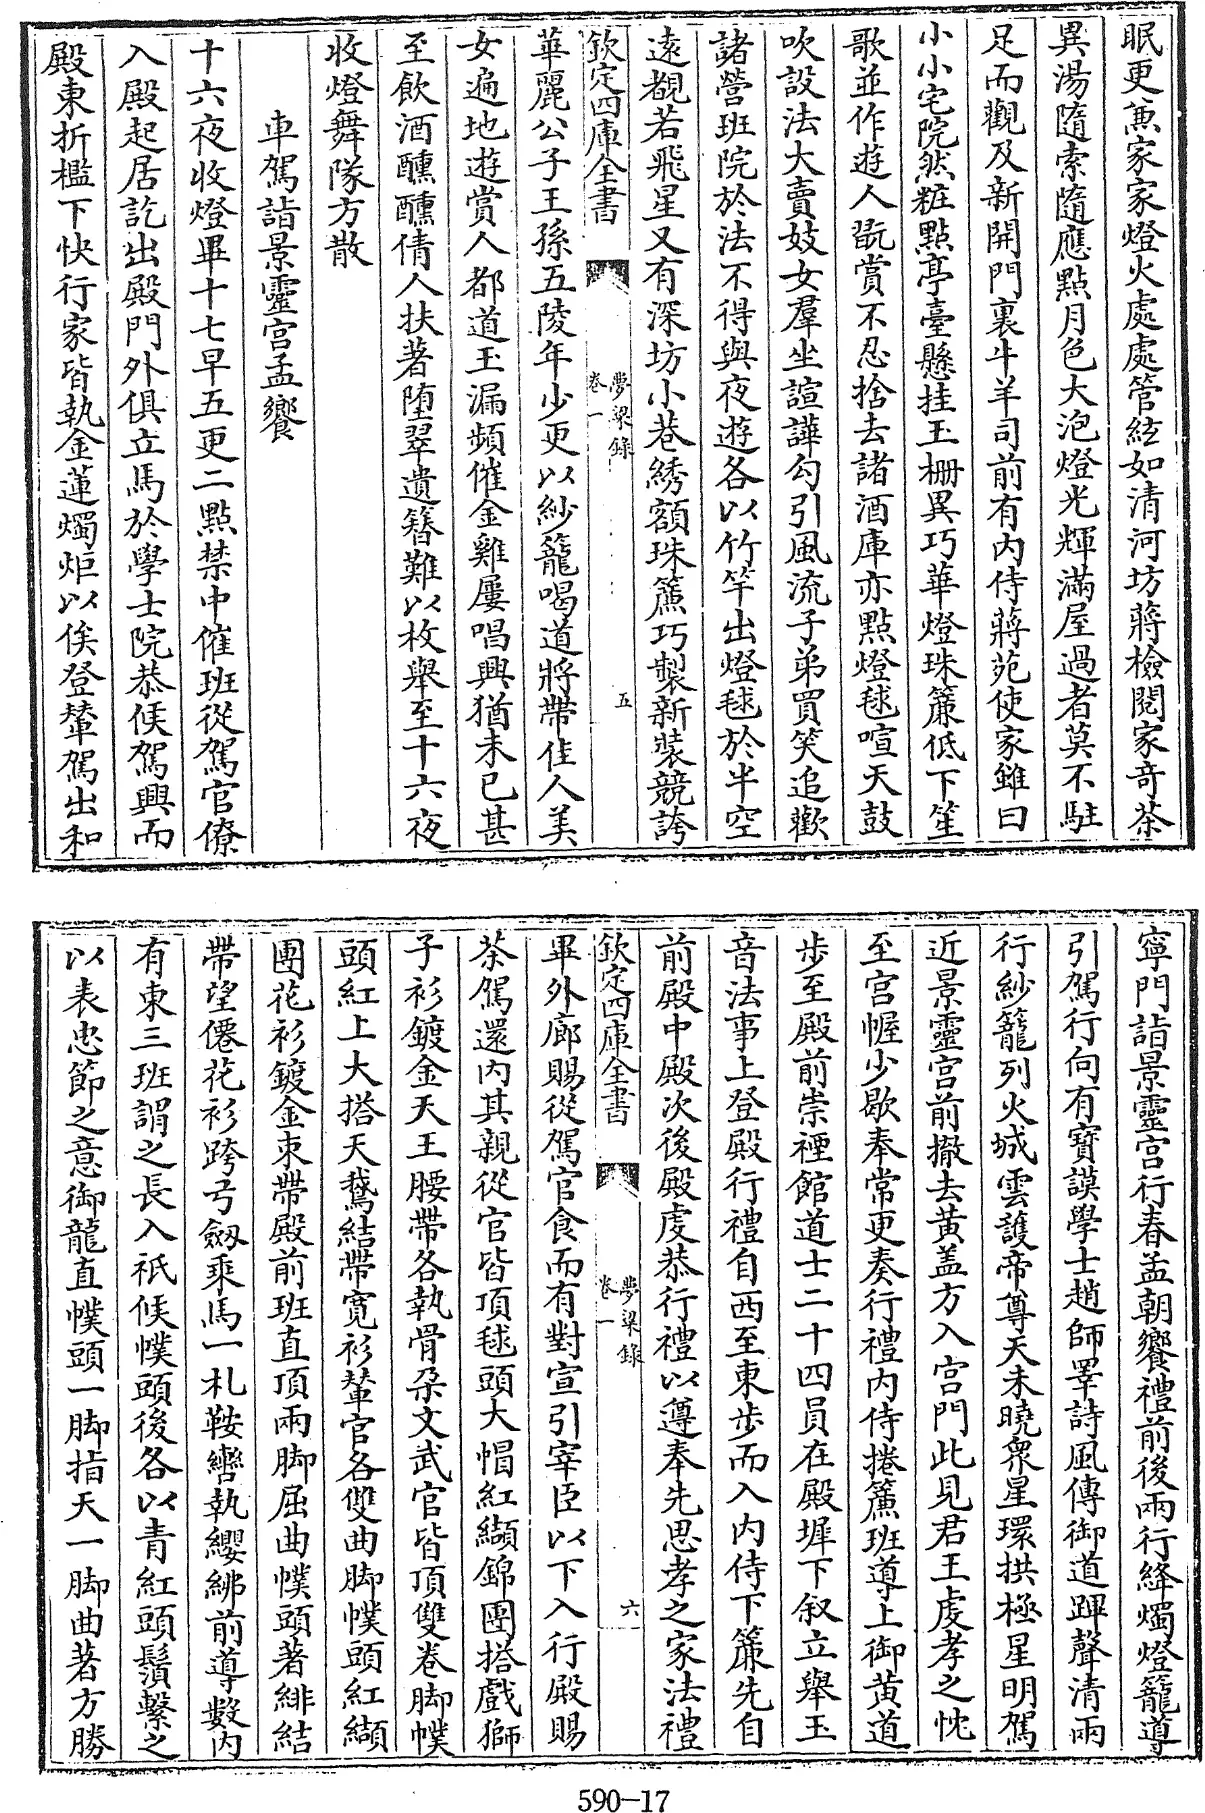 眠更兼家家燈火處處管絃如清河坊蔣檢閱家奇茶
異湯隨索隨應點月色大泡燈光輝滿屋過者莫不駐
足而觀及新開門裏牛羊司前有內侍蔣苑使家雖曰
小小宅院然粧點亭臺懸挂玉柵異巧華燈珠簾低下笙
歌並作遊人翫賞不忍捨去諸酒庫亦點燈毬喧天鼓
吹設法大賣妓女羣坐諠譁勾引風流子弟買笑追歡
諸營班院於法不得與夜遊各以竹竿出燈毬於半空
遠覩若飛星又有深坊小巷綉額珠簾巧製新裝競誇
欽定四庫全書
夢粱錄
卷一
五
華麗公子王孫五陵年少更以紗籠喝道將帶佳人美
女遍地遊賞人都道玉漏頻催金雞屢唱興猶未已甚
至飲酒醺醺倩人扶著墮翠遺簪難以枚舉至十六夜
收燈舞隊方散
車駕詣景靈宮孟饗
十六夜收燈畢十七早五更二點禁中催班從駕官僚
入殿起居訖出殿門外俱立馬於學士院恭候駕興而
殿東折檻下快行家皆執金蓮燭炬以俟登輦駕出和
寧門詣景靈宮行春孟朝饗禮前後兩行絳燭燈籠導
引駕行向有寶謨學士趙師睪詩風傳御道蹕聲清兩
行紗籠列火城雲護帝尊天未曉衆星環拱極星明駕
近景靈宮前撤去黃盖方入宮門此見君王虔孝之忱
至宮幄少歇奉常更奏行禮內侍捲簾班導上御黃道
步至殿前崇禋館道士二十四員在殿墀下叙立舉玉
音法事上登殿行禮自西至東步而入內侍下簾先自
前殿中殿次後殿虔恭行禮以遵奉先思孝之家法禮
欽定四庫全書
夢粱錄
卷一
六
畢外廊賜從駕官食而有對宣引宰臣以下入行殿賜
茶駕還內其親從官皆頂毬頭大帽紅纈錦團搭戲獅
子衫鍍金天王腰帶各執骨朶文武官皆頂雙卷脚幞
頭紅上大搭天鵞結帶寬衫輦官各雙曲脚幞頭紅纈
團花衫鍍金束帶殿前班直頂兩脚屈曲幞頭著緋結
帶望僊花衫跨弓劔乘馬一札鞍轡執纓紼前導數內
有東三班謂之長入祇候幞頭後各以青紅頭鬚繫之
以表忠節之意御龍直幞頭一脚指天一脚曲著方勝
590-17